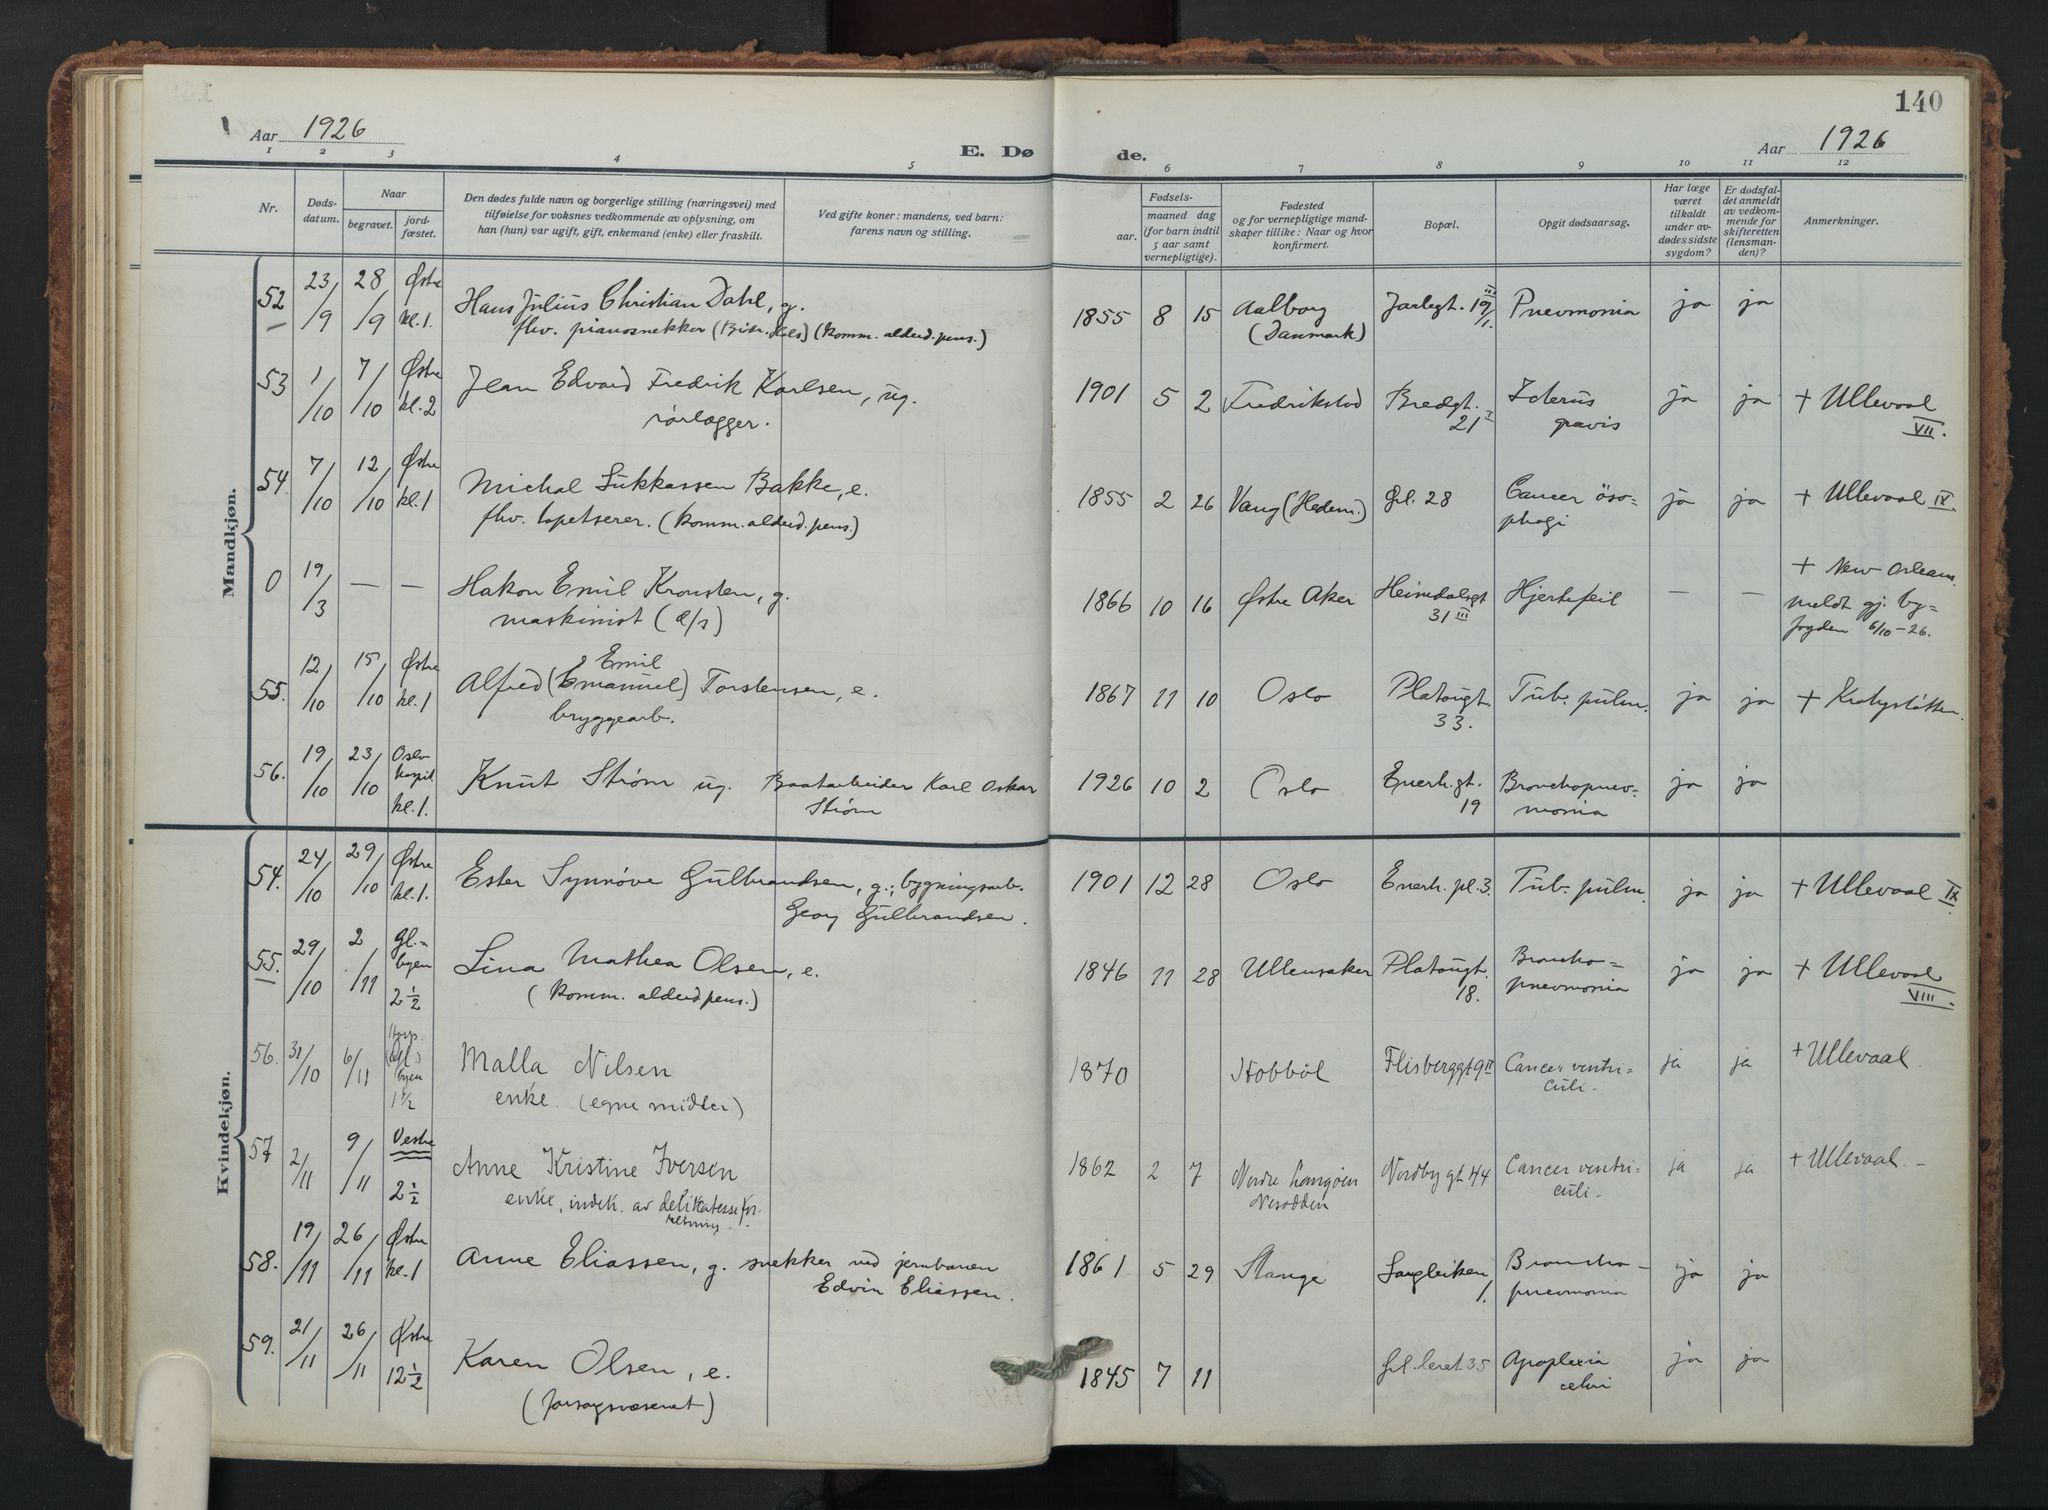 140
Aar 1926
E. Dø
de.
Aar 1926
1 2 3 4 5 6 7 8 9 10 11 12
Nr.
Døds-
datum.
Naar
begravet.
jord-
fæstet.
Den dødes fulde navn og borgerlige stilling (næringsvei) med
tilføielse for voksnes vedkommende av oplysning, om
han (hun) var ugift, gift, enkemand (enke) eller fraskilt.
Ved gifte koner: mandens, ved barn:
farens navn og stilling.
Fødsels-
aar.
maaned dag
(for barn indtil
5 aar samt
vernepligtige).
Fødested
og for vernepligtige mand-
skaper tillike: Naar og hvor
konfirmert.
Bopæl.
Opgit dødsaarsag.
Har læge
været
tilkaldt
under av-
dødes sidste
sygdom?
Er dødsfal-
det anmeldt
av vedkom-
mende for
skifteretten
(lensman-
den)?
Anmerkninger.
Mandkjøn.
52 23/9 28/9 Østre kl. 1. Hans Julius Christian Dahl, g. 1855 8 15 Aalborg Jarlegt. 19 III/1. Pnevmonia ja ja
fhv. pianosnekker (komm. alderd. pens.) (Danmark)
53 1/10 7/10 Østre kl. 2 Jean Edvard Fredrik Karlsen, ug. 1901 5 2 Fredrikstad Bredgt. 21 I Icterus ja ja + Ullevaal
rørlegger. gravis VII.
54. 7/10 12/10 Østre kl. 1 Michal Lukkassen Bakke, e. 1855 2 26 Vang (Hedem.) Grl. 28 Cancer öso- ja ja + Ullevaal IX.
fhv. tapetserer. (komm. alderd. pens.) phagi
0 19/3 — — Hakon Emil Kronsten, g. 1866 10 16 Østre Aker Heimdalsgt 31 III Hjertefeil — — + New Orleans.
maskinist (d/s) meldt gj. by-
fogden 6/10-26.
55. 12/10 15/10 Østre kl. 1 Alfred (Emanuel) Emil Torstensen, e. 1867 11 10 Oslo Platougt. 33. Tub. pulm. ja ja + Krohgstøtten.
bryggearb.
56. 19/10 23/10 Oslo hospit. kl. 1. Knut Strøm ug. Baatarbeider Karl Oskar 1926 10 2 Oslo Enerh.gt. 19 Bronchopnev- ja ja
Strøm monia
Kvindekjøn.
54. 24/10 29/10 Østre kl. 1. Ester Synnøve Gulbrandsen, g., bygningsarb. 1901 12 28 Oslo Enerh. pl. 3. Tub. pulm. ja ja + Ullevaal IX
Georg Gulbrandsen.
55. 29/10 2/11 Gl.- byen 2 1/2 Lina Mathea Olsen, e. 1846 11 28 Ullensaker Platougt. 18. Broncho- ja ja + Ullevaal
(komm. alderd pens.) pnevmonia VIII.
56. 31/10 6/11 byen 1 1/2 Malla Nilsen 1870 Hobböl Flisberggt 9 II Cancer ventri- ja ja + Ullevaal
enke. (egne midler) culi.
57 2/11 9/11 Vestre 2 1/2 Anne Kristine Iversen 1862 2 7 Nordre Langøen Nordbygt 44 Cancer ventri- ja ja + Ullevaal. -
enke, indeh. av delikatessefor- Nesodden culi.
retning.
58. 19/11 26/11 Østre kl. 1 Anne Eliassen, g. snekker ved jernbanen 1861 5 29 Stange Langleiken 1. Broncho- ja ja
Edvin Eliassen. pnevmonia
59. 21/11 26/11 Østre 12 1/2 Karen Olsen, e. 1845 7 11 Grl. leret 35 Apoplexia ja ja
(forsorgsvæsenet)